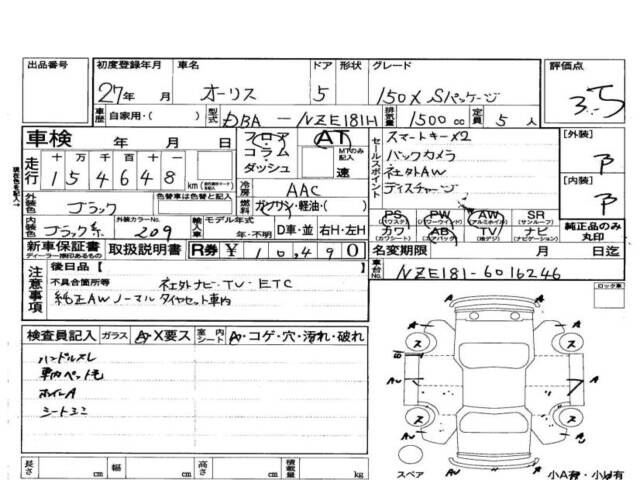 出品番号 初度登録年月 車名 ドア 形状 グレード 評価点
27年 月 オーリス 5 150X Sパッケージ 3.5
車歴 自家用・( ) 型式 DBA - NZE181H 排気量 1500 cc 定員 5 人
車検 年 月 日 フロア コラム ダッシュ AT MTのみ記入 速
セールスポイント スマートキー×2
バックカメラ
社外AW
ディスチャージ
[外装] B
[内装] B
走行 十万 万 千 百 十 一
154648 km
冷房 AAC
外装色 ブラック 色替車は色替と記入 燃料 ガソリン・軽油・( )
内装色 ブラック系 外装カラーNo. 209 輸入車 モデル年式 年・不明 D車・並 右H・左H
PS (パワステ) PW (パワーウインド) AW (アルミホイル) SR (サンルーフ)
カワ (カワシート) AB (エアバック) TV (地デジ) ナビ (ナビゲーション)
純正品のみ丸印
新車保証書 ディーラー捺印あるもの 取扱説明書 R券 ¥ 10490
名変期限 月 日迄
注意事項 後日品【 】
不具合箇所等 社外ナビ・TV・ETC
純正AWノーマルタイヤセット車内
車台No. NZE181-6016246
ロック車
検査員記入 ガラス A・X要ス 室内シート A・コゲ・穴・汚れ・破れ
ハンドルスレ
車内ペット毛
ホイールA
シートエコ
A A
ス ス
A A
ス ス
A A
スペア
長さ cm 幅 cm 高さ cm 積載量 kg
小A有・小U有
現在の色を記入→